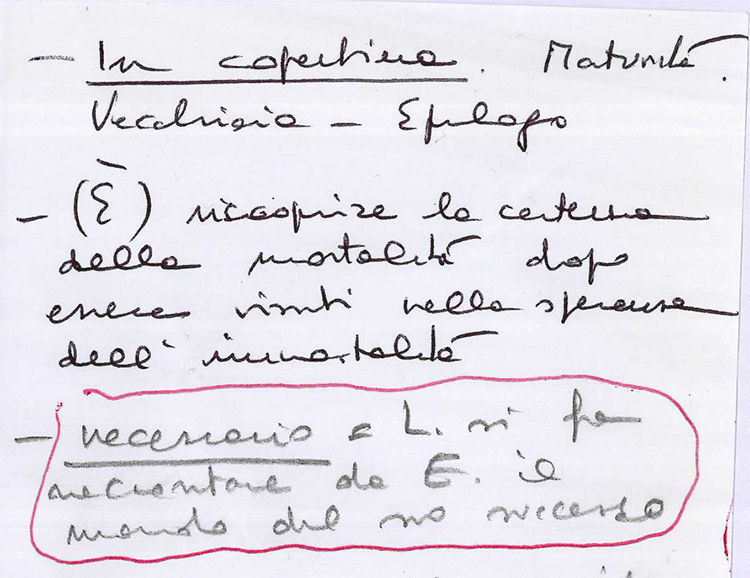 - In copertina. Maturità.
Vecchiaia - Epilogo
- (È) riacquisire la certezza
della mortalità dopo
essere vissuti nella speranza
dell'immortalità
- necessario a L. si fa
raccontare da E. il
mondo del no successo